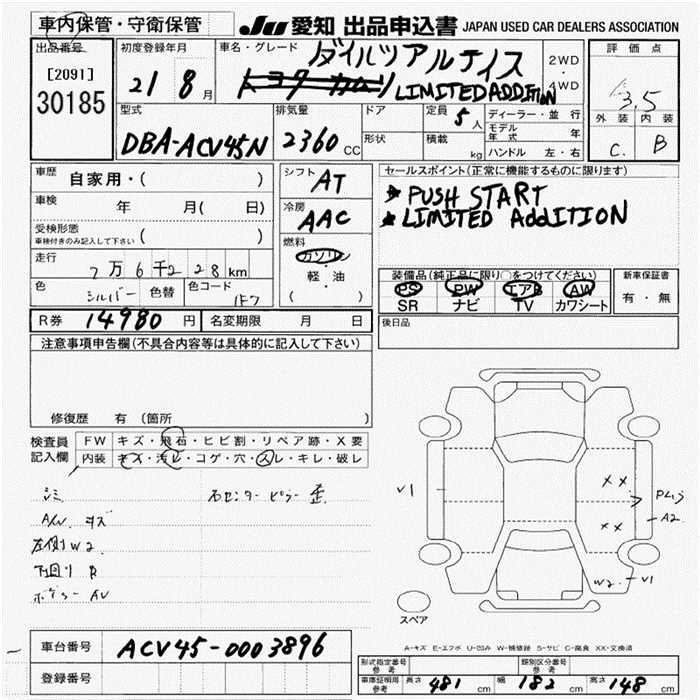 車内保管・守衛保管
JU 愛知 出品申込書 JAPAN USED CAR DEALERS ASSOCIATION
出品番号
[2091]
30185
初度登録年月
21 8月
車名・グレード
ダイハツ アルティス
LIMITED ADDITION
2WD
・
4WD
評価点
3.5
外装 内装
C. B
型式
DBA-ACV45N
排気量
2360 CC
ドア
形状
定員
5人
積載
kg
ディーラー・並行
モデル年式 年
ハンドル 左・右
車歴
自家用・( )
車検
年 月( 日)
受検形態
車検付きのみ記入して下さい ( )
走行
7万6千228km
色
シルバー
色替
色コード
1F7
シフト
AT
冷房
AAC
燃料
ガソリン
・
軽・油
( )
セールスポイント(正常に機能するものに限ります)
★ PUSH START
★ LIMITED AddITION
装備品(純正品に限り○をつけてください)
PS PW エアB AW
SR ナビ TV カワシート
新車保証書
有・無
R券 14980 円
名変期限 月 日
後日品
注意事項申告欄(不具合内容等は具体的に記入して下さい)
修復歴 有(箇所
検査員
記入欄
FW キズ・飛石・ヒビ割・リペア跡・X要
内装 キズ・汚レ・コゲ・穴・スレ・キレ・破レ
シミ
A/W キズ
左側 W2
下回り R
ボデー AV
右センターピラー 歪
V1
XX
XX
A2
W2 V1
スペア
A-キズ E-エクボ U-凹み W-補修跡 S-サビ C-腐食 XX-交換済
車台番号
ACV45-0003896
登録番号
形式指定番号
参考
類別区分番号
参考
車庫証明用
参考
長さ 481 cm 幅 182 cm 高さ 148 cm